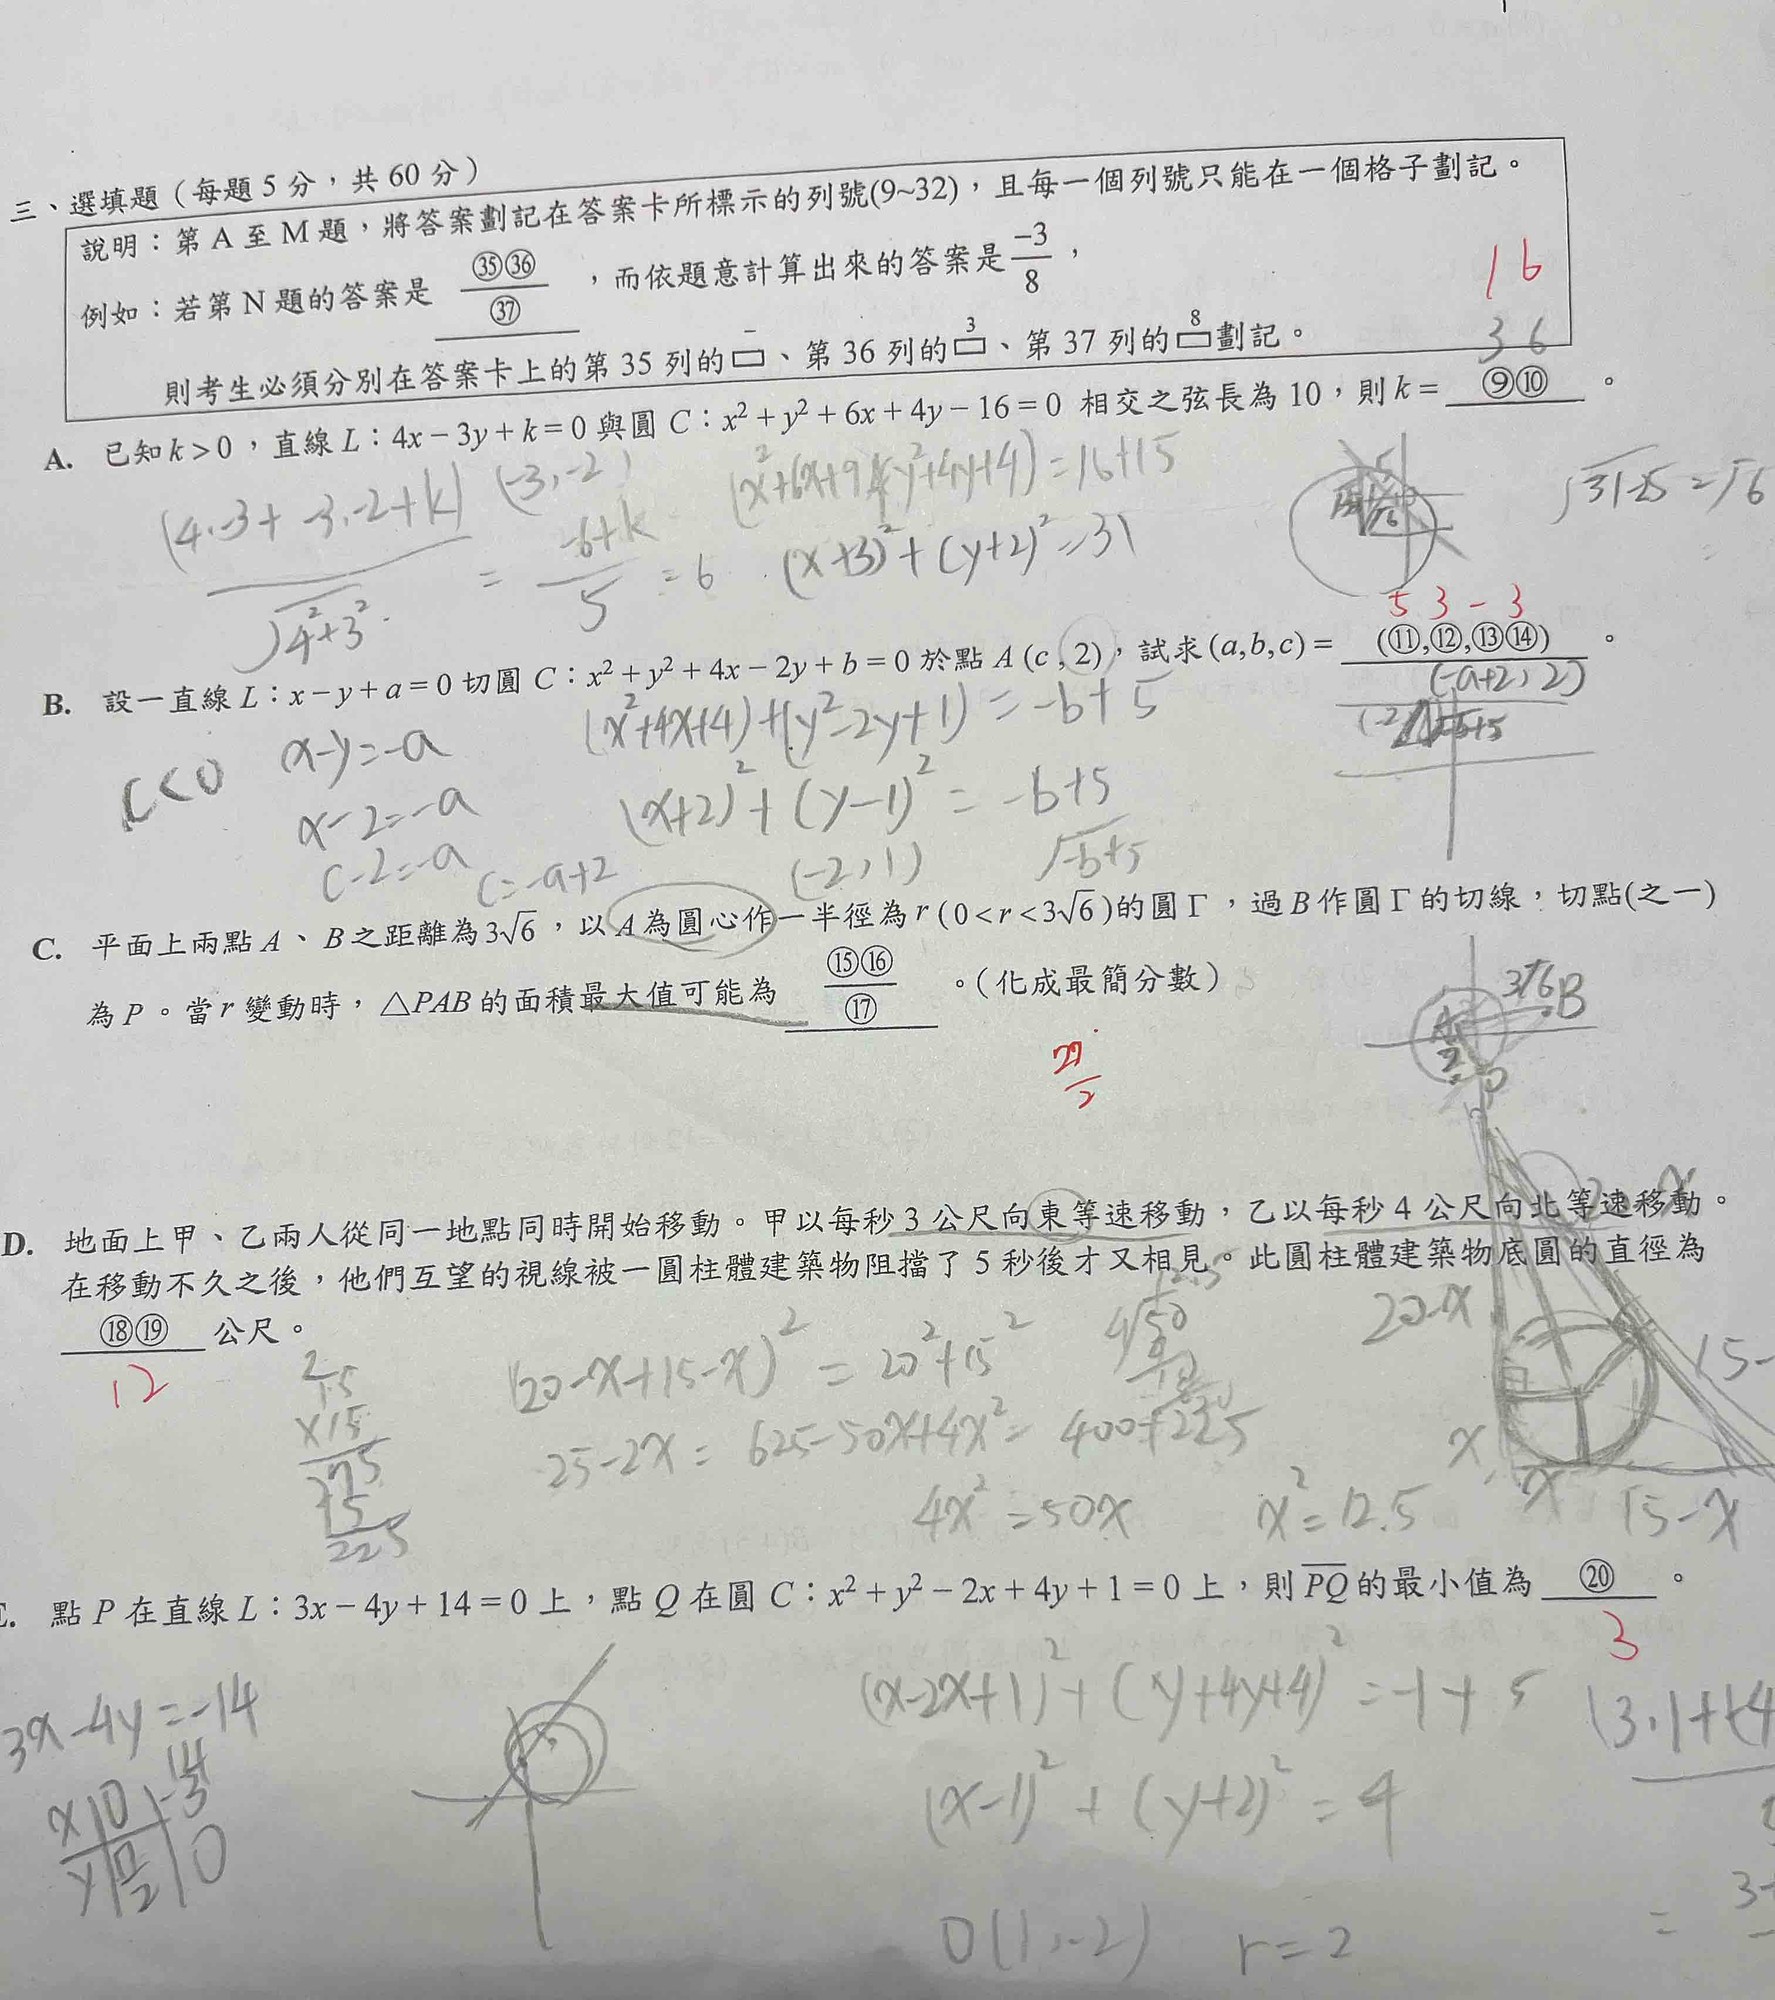 三、選填題（每題5分，共60分）
說明：第A至M題，將答案劃記在答案卡所標示的列號(9~32)，且每一個列號只能在一個格子劃記。
例如：若第N題的答案是 ㉟㊱/㊲ ，而依題意計算出來的答案是 -3/8 ，
則考生必須分別在答案卡上的第35列的 − □、第36列的 3 □、第37列的 8 □劃記。
16
36
A. 已知k>0，直線L：4x−3y+k=0與圓C：x²+y²+6x+4y−16=0 相交之弦長為10，則k= ⑨⑩ 。
|4·-3+-3·-2+k| (-3,-2) (x²+6x+9)(y²+4y+4)=16+15
√(4²+3²) = -6+k / 5 = 6 (x+3)²+(y+2)²=31
√(31-25)=√6
5 3 - 3
B. 設一直線L：x−y+a=0切圓C：x²+y²+4x−2y+b=0於點A(c,2)，試求(a,b,c)= (⑪,⑫,⑬⑭) 。
(-a+2, 2)
c<0 x-y=-a (x²+4x+4)+(y²-2y+1)=-b+5
x-2=-a (x+2)²+(y-1)²=-b+5
c-2=-a c=-a+2 (-2,1) √(-b+5)
C. 平面上兩點A、B之距離為3√6，以A為圓心作一半徑為r(0<r<3√6)的圓Γ，過B作圓Γ的切線，切點(之一)
為P。當r變動時，△PAB的面積最大值可能為 ⑮⑯/⑰ 。(化成最簡分數)
3√6 B
27/2
D. 地面上甲、乙兩人從同一地點同時開始移動。甲以每秒3公尺向東等速移動，乙以每秒4公尺向北等速移動。
在移動不久之後，他們互望的視線被一圓柱體建築物阻擋了5秒後才又相見。此圓柱體建築物底圓的直徑為
⑱⑲ 公尺。
12
20-x
15-
(20-x+15-x)²=20²+15²
25-2x=625-50x+4x²=400+225
4x²=50x x²=12.5
x
x 15-x
15
×15
75
15
225
E. 點P在直線L：3x−4y+14=0上，點Q在圓C：x²+y²−2x+4y+1=0上，則PQ的最小值為 ⑳ 。
3
3x-4y=-14 (x-2x+1)²+(y+4y+4)²=-1+5 |3·1+(-4
(x-1)²+(y+2)²=4
O(1,-2) r=2